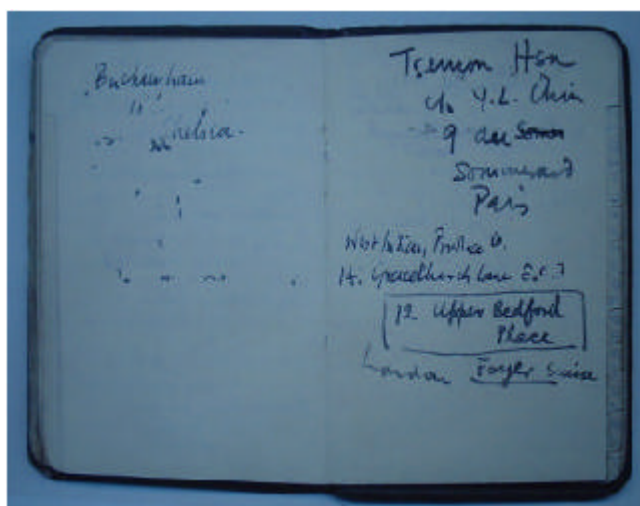 Buckingham
"
Chelsea.
Tsemon Hsu
c/o Y.L. Chin
9 du Somm
Sommerard
Paris
West Indian, Produce
14. Gracechurch Lane E.C.3
12. Upper Bedford
Place
London Foyer Suisse